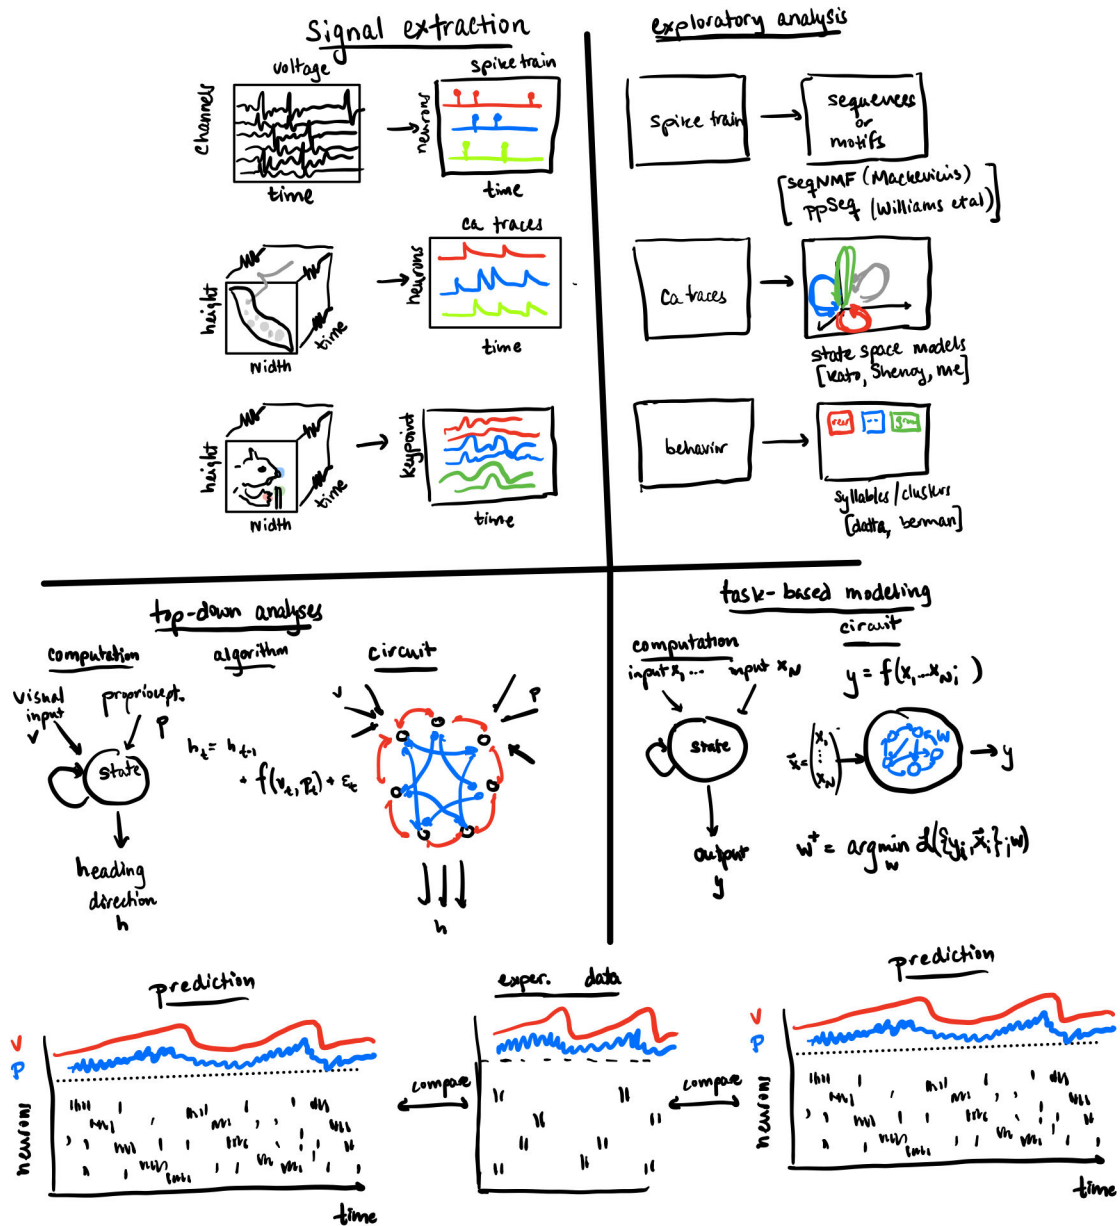 signal extraction
voltage
channels
time
spike train
neurons
time
height
width
time
ca traces
neurons
time
height
width
time
keypoint
time
exploratory analysis
spike train
sequences
or
motifs
[seqNMF (Mackevicius)
ppSeq (Williams et al)]
ca traces
state space models
[kato, Shenoy, me]
behavior
rear
--
groom
syllables/clusters
[datta, berman]
top-down analyses
computation
visual
input
v
propriocept.
p
state
heading
direction
h
algorithm
h_t = h_{t-1}
+ f(v_t, p_t) + ε_t
circuit
v
p
h
task-based modeling
computation
input x_1 ...
input x_N
state
output
y
circuit
y = f(x_1...x_N; )
x⃗ = (x_1 ⋮ x_N)
w
y
w⁺ = argmin_w ℒ({y_i, x⃗_i}; w)
prediction
v
p
neurons
time
compare
exper. data
compare
prediction
v
p
neurons
time